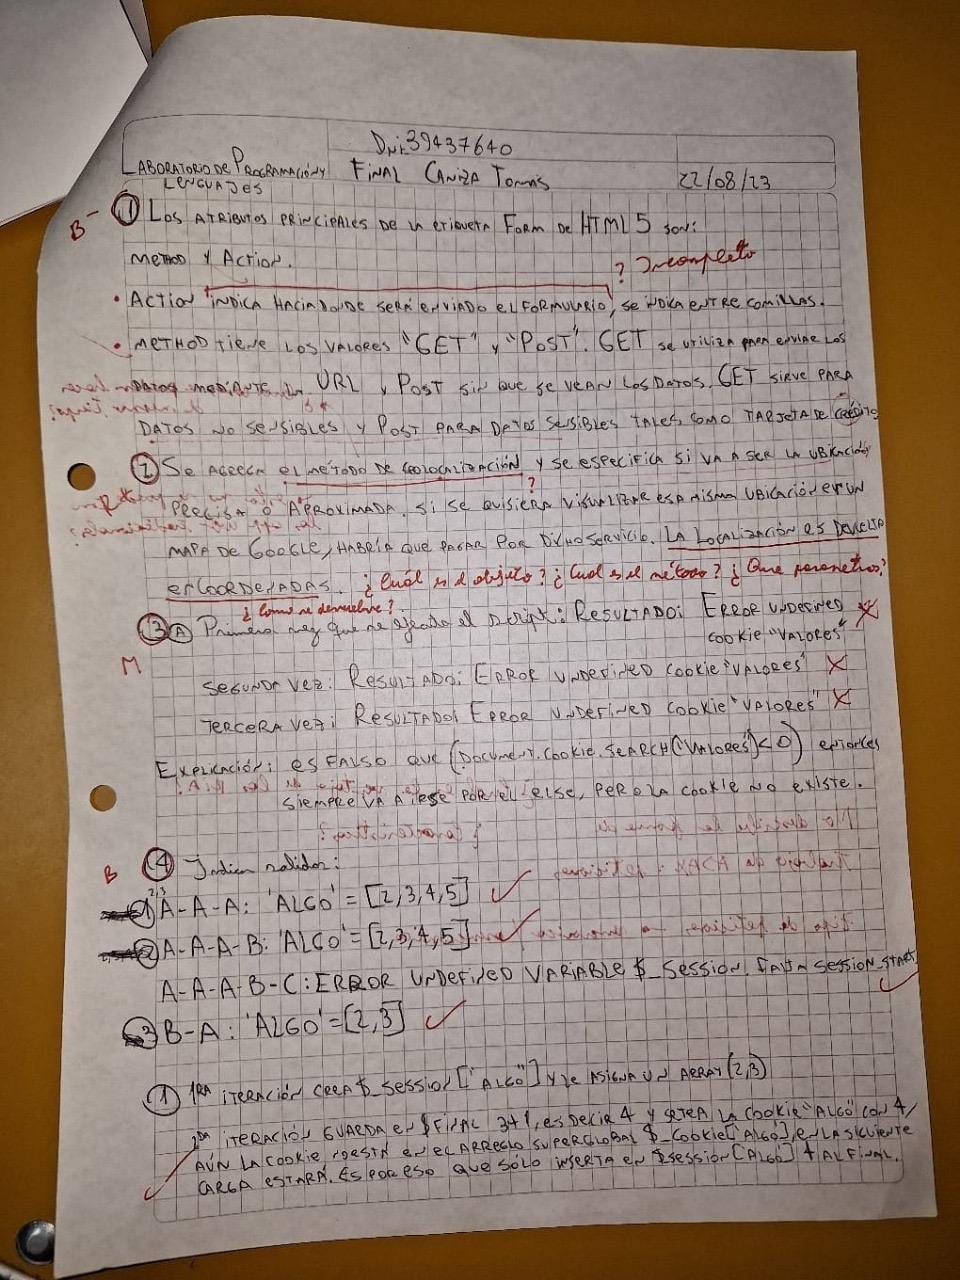 DNI: 39437640
LABORATORIO DE PROGRAMACIÓN Y LENGUAJES
FINAL CANIZA TOMÁS
22/08/23
B-
① LOS ATRIBUTOS PRINCIPALES DE LA ETIQUETA FORM DE HTML 5 SON:
METHOD Y ACTION.
? Incompleto
• ACTION INDICA HACIA DONDE SERÁ ENVIADO EL FORMULARIO, SE INDICA ENTRE COMILLAS.
• METHOD TIENE LOS VALORES "GET" Y "POST". GET SE UTILIZA PARA ENVIAR LOS
DATOS MEDIANTE LA URL Y POST SIN QUE SE VEAN LOS DATOS. GET SIRVE PARA
DATOS NO SENSIBLES Y POST PARA DATOS SENSIBLES TALES COMO TARJETA DE CRÉDITO
② SE AGREGA EL MÉTODO DE GEOLOCALIZACIÓN Y SE ESPECIFICA SI VA A SER LA UBICACIÓN
?
PRECISA O APROXIMADA. SI SE QUISIERA VISUALIZAR ESA MISMA UBICACIÓN EN UN
MAPA DE GOOGLE, HABRÍA QUE PAGAR POR DICHO SERVICIO. LA LOCALIZACIÓN ES DEVUELTA
EN COORDENADAS. ¿Cuál es el objeto? ¿Cual es el método? ¿Que parametros?
¿Como se devuelve?
③ A Primera vez que se ejecuta el script: RESULTADO: ERROR UNDEFINED
COOKIE "VALORES" X
M
SEGUNDA VEZ: RESULTADO: ERROR UNDEFINED COOKIE "VALORES" X
TERCERA VEZ: RESULTADO: ERROR UNDEFINED COOKIE "VALORES" X
EXPLICACIÓN: ES FALSO QUE (DOCUMENT.COOKIE.SEARCH("VALORES")<0) ENTONCES
SIEMPRE VA A IRSE POR EL ELSE, PERO LA COOKIE NO EXISTE.
B
④ Indican salidas:
① A-A-A: 'ALGO' = [2,3,4,5] ✓
② A-A-A-B: 'ALGO' = [2,3,4,5] ✓
A-A-A-B-C: ERROR UNDEFINED VARIABLE $_SESSION. FALTA SESSION_START ✓
③ B-A: 'ALGO' = [2,3] ✓
① 1RA ITERACIÓN CREA $_SESSION["ALGO"] Y LE ASIGNA UN ARRAY(2,3)
2DA ITERACIÓN GUARDA EN $FINAL 3+1, ES DECIR 4 Y SETEA LA COOKIE "ALGO" CON 4,
AÚN LA COOKIE NO ESTÁ EN EL ARREGLO SUPERGLOBAL $_COOKIE["ALGO"], EN LA SIGUIENTE
CARGA ESTARÁ. ES POR ESO QUE SÓLO INSERTA EN $SESSION[ALGO] 4 AL FINAL.